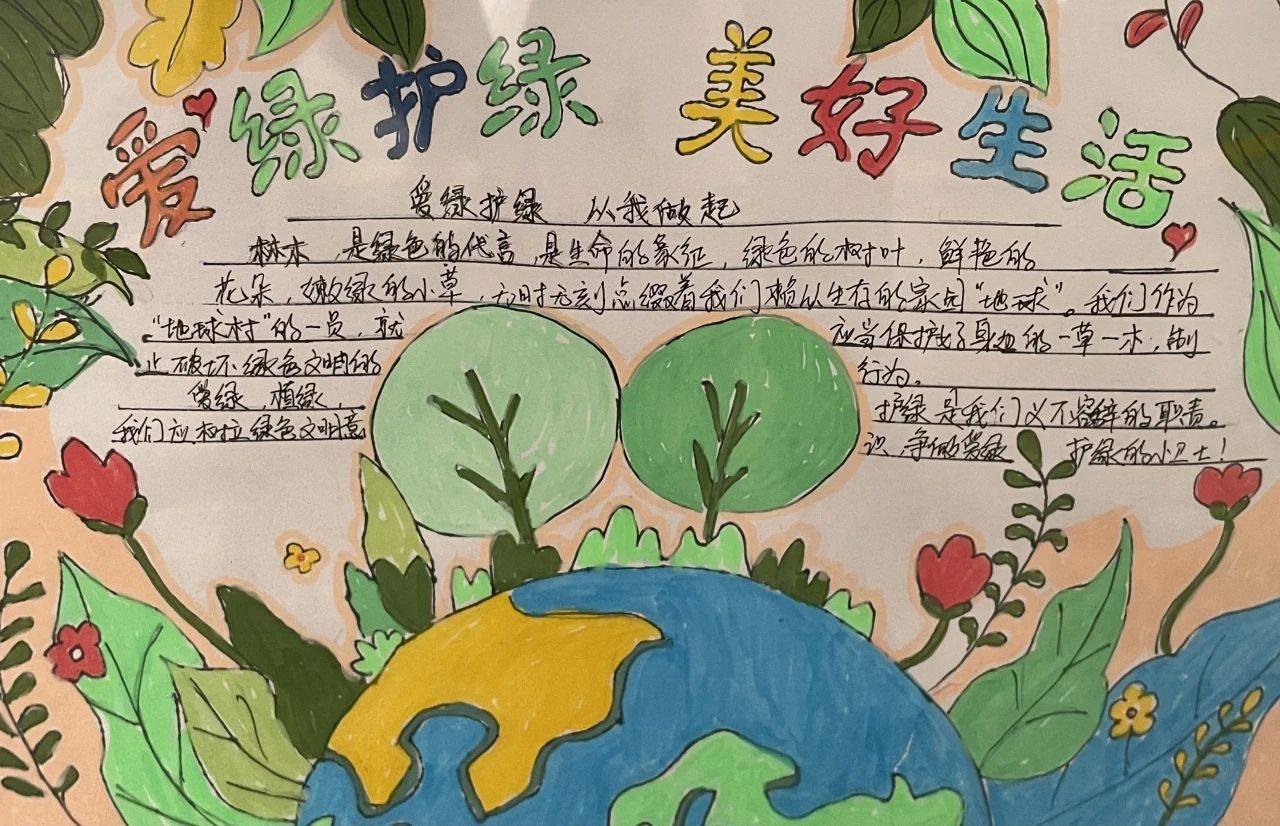 爱绿护绿 美好生活
爱绿护绿 从我做起
林木,是绿色的代言,是生命的象征,绿色的树叶,鲜艳的
花朵,嫩绿的小草,无时无刻点缀着我们赖以生存的家园“地球”。我们作为
“地球村”的一员,就应当保护好身边的一草一木,制
止破坏绿色文明的行为。
爱绿,植绿,护绿是我们义不容辞的职责。
我们应树立绿色文明意识,争做爱绿护绿的小卫士!